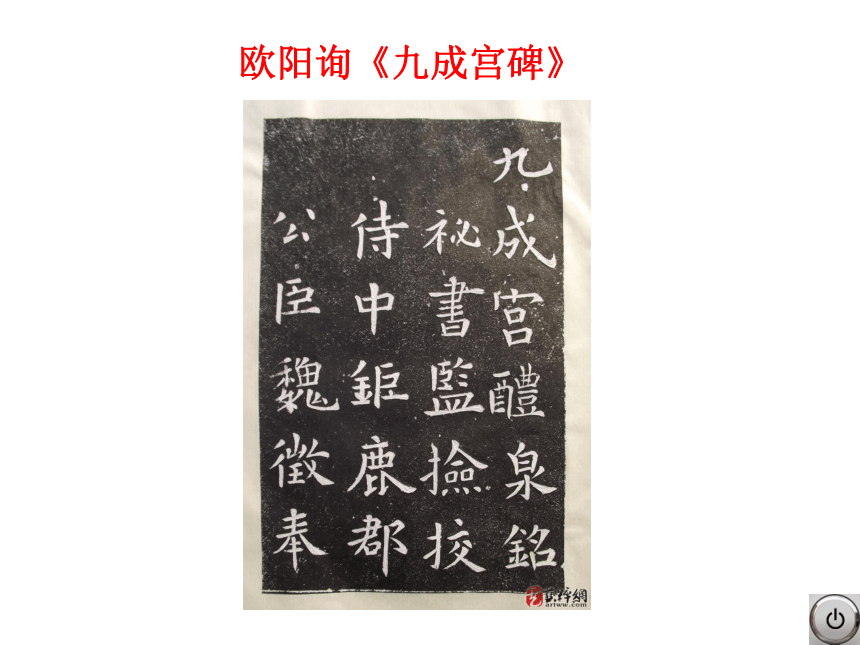 欧阳询《九成宫碑》
九成宫醴泉銘
祕書監撿挍
侍中鉅鹿郡
公臣魏徵奉
artww.com